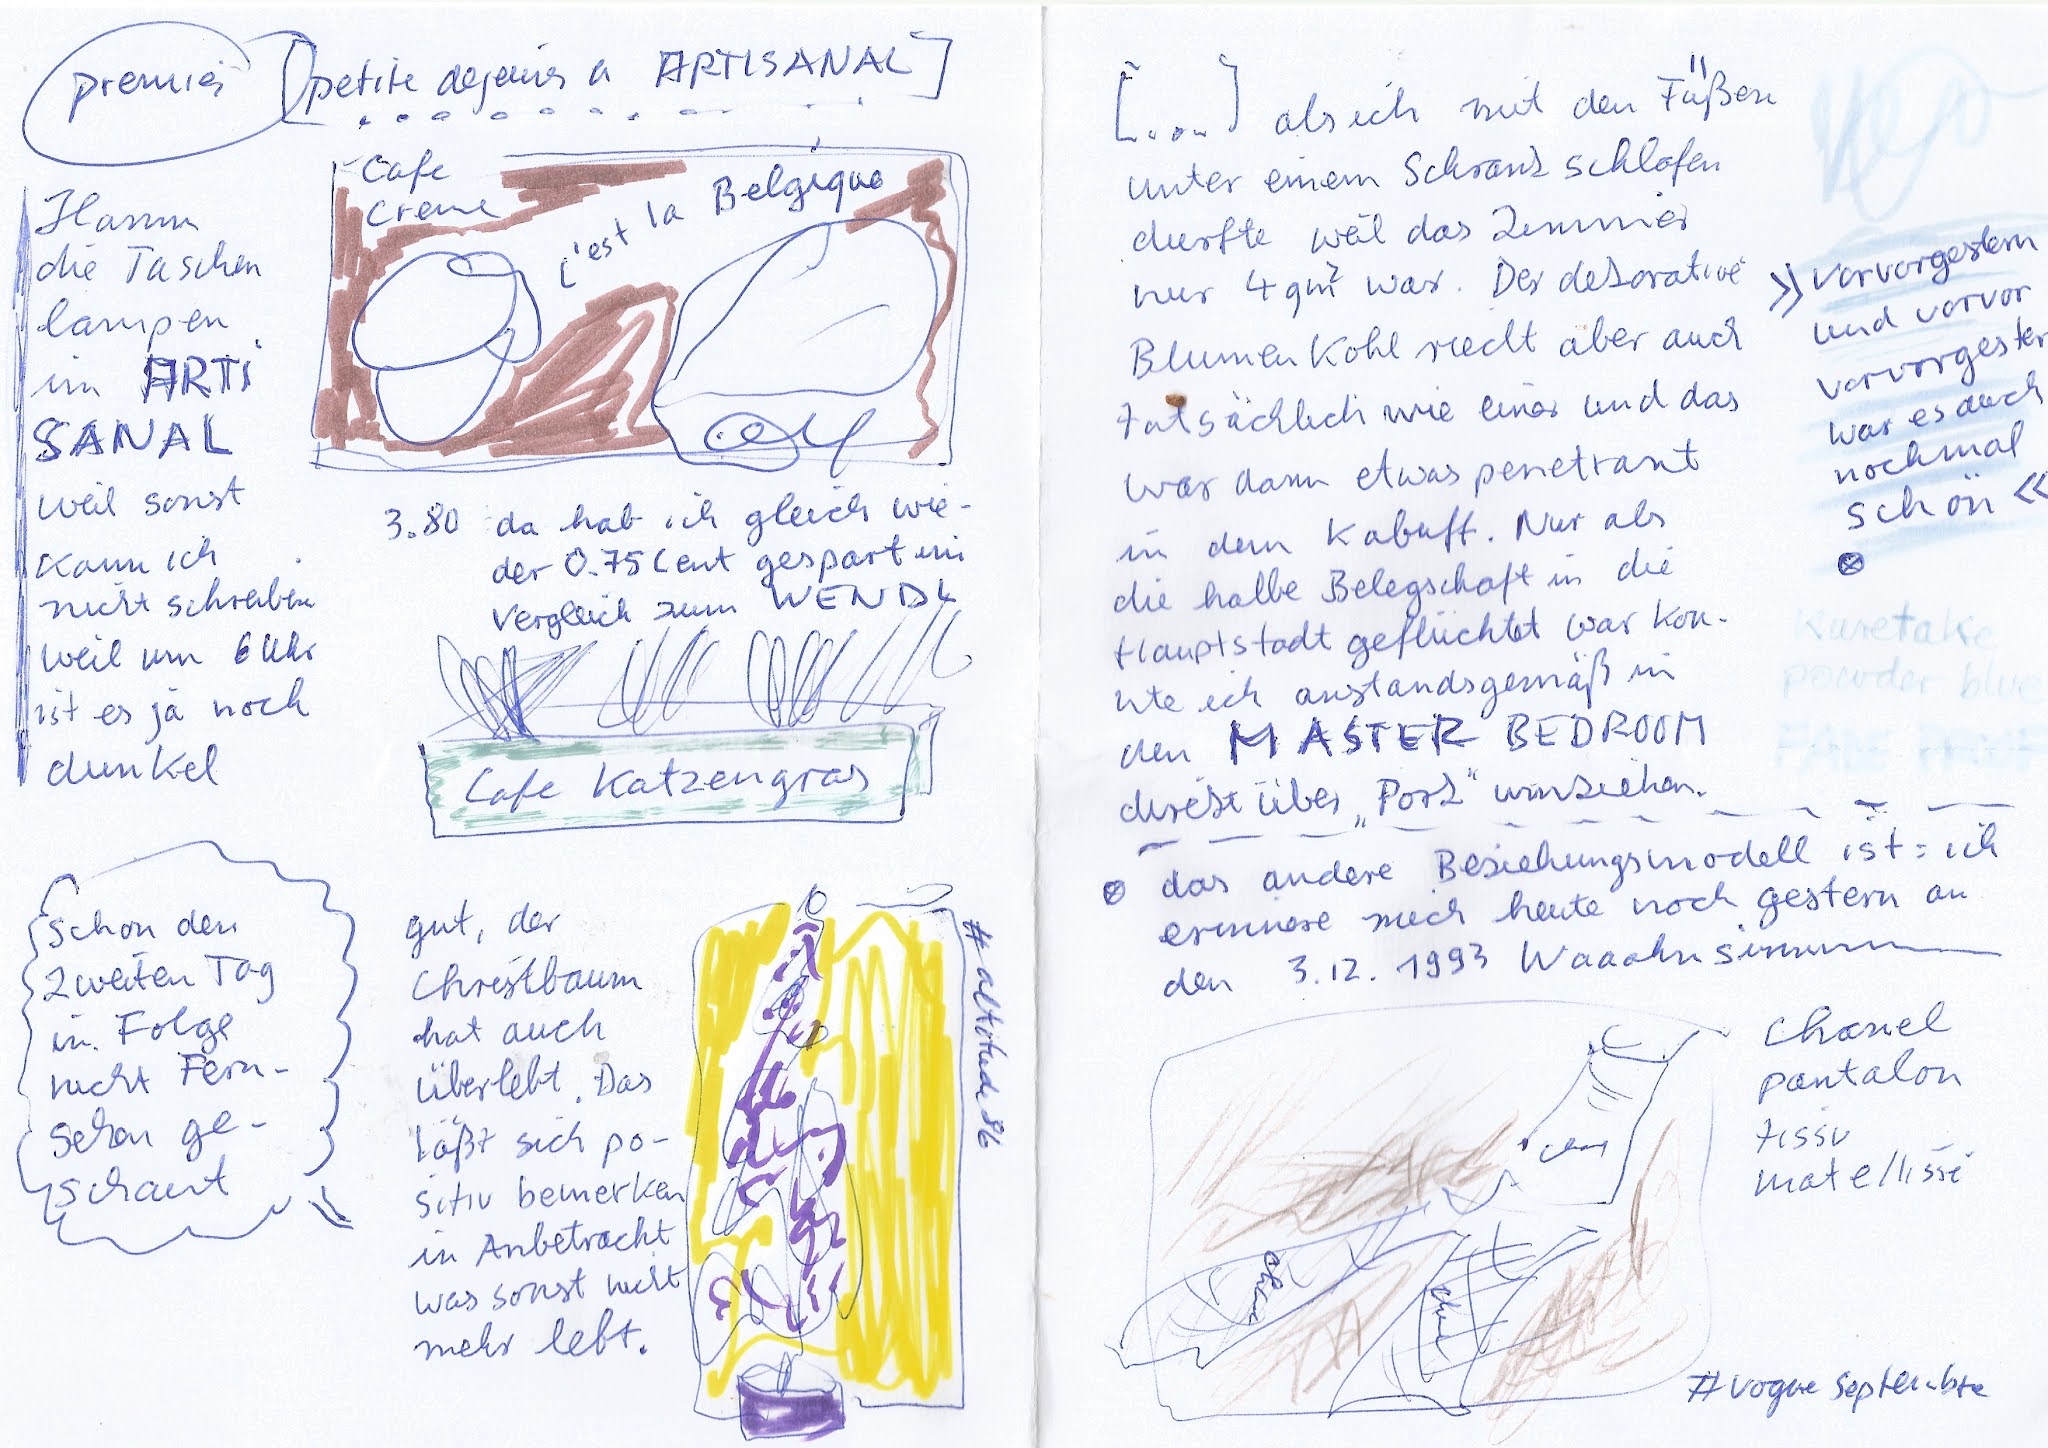 premier [petite dejeuner a ARTISANAL]
Cafe
Creme
C'est la Belgique
Hamm
die Taschen
lampen
im ARTI
SANAL
weil sonst
kann ich
nicht schreiben
weil um 6 Uhr
ist es ja noch
dunkel
3.80 da hab ich gleich wie-
der 0.75 Cent gespart im
Vergleich zum WENDL
Cafe Katzengras
Schon den
zweiten Tag
in Folge
nicht Fern-
sehen ge-
schaut
gut, der
Christbaum
hat auch
überlebt. Das
läßt sich po-
sitiv bemerken
in Anbetracht
was sonst nicht
mehr lebt.
#altitude86
[....] als ich mit den Füßen
unter einem Schrank schlafen
durfte weil das Zimmer
nur 4 qm² war. Der dekorative
Blumenkohl riecht aber auch
tatsächlich wie einer und das
war dann etwas penetrant
in dem Kabuff. Nur als
die halbe Belegschaft in die
Hauptstadt geflüchtet war kon-
nte ich anstandsgemäß in
den MASTER BEDROOM
direkt über „Pork" umziehen.
»vorvorgestern
und vorvor
vorvorgester
war es auch
nochmal
schön«
Kuretake
powder blue
das andere Beziehungsmodell ist = ich
erinnere mich heute noch gestern an
den 3.12.1993 Waaahnsinnnn
Chanel
pantalon
tissu
matellissé
#vogue septembre